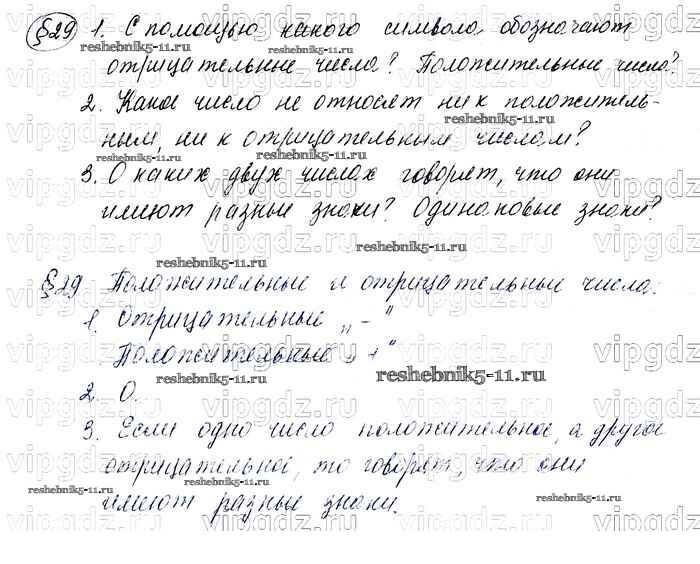 §29 1. С помощью какого символа обозначают
отрицательные числа? Положительные числа?
2. Какое число не относят ни к положитель-
ным, ни к отрицательным числам?
3. О каких двух числах говорят, что они
имеют разные знаки? Одинаковые знаки?
§29 Положительные и отрицательные числа.
1. Отрицательные „-"
Положительные „+"
2. 0.
3. Если одно число положительное, а другое
отрицательное, то говорят, что они
имеют разные знаки.
vipgdz.ru
reshebnik5-11.ru